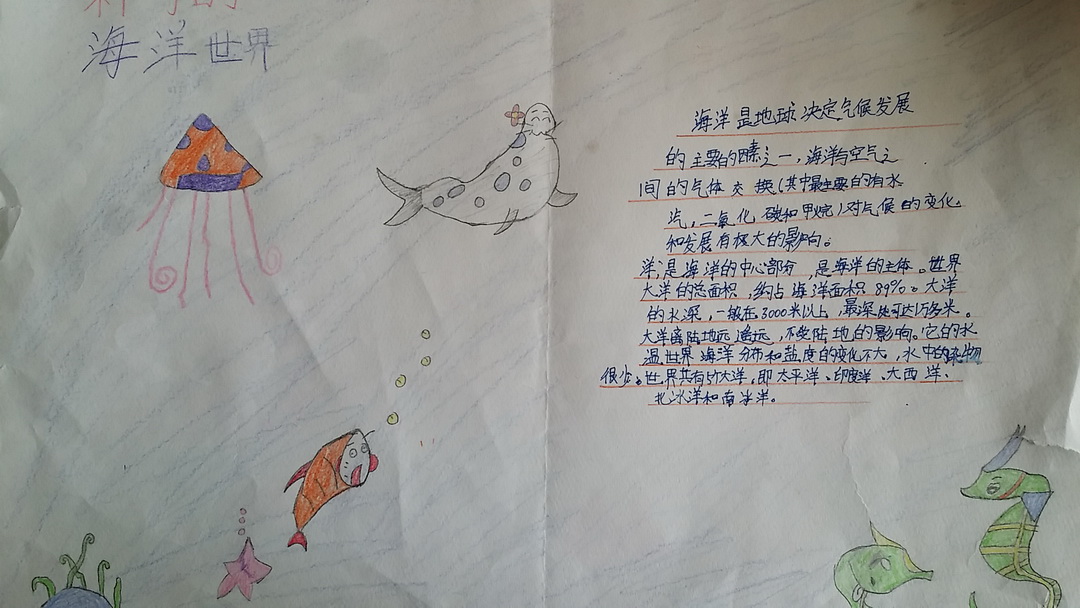 海洋世界
海洋是地球决定气候发展
的主要的因素之一，海洋与空气之
间的气体交换（其中最主要的有水
汽，二氧化碳和甲烷）对气候的变化
和发展有极大的影响。
洋，是海洋的中心部分，是海洋的主体。世界
大洋的总面积，约占海洋面积89%。大洋
的水深，一般在3000米以上，最深处可达1万多米。
大洋离陆地远遥远，不受陆地的影响。它的水
温世界海洋分布和盐度的变化不大，水中的
很少。世界共有5大洋，即太平洋、印度洋、大西洋、
北冰洋和南冰洋。